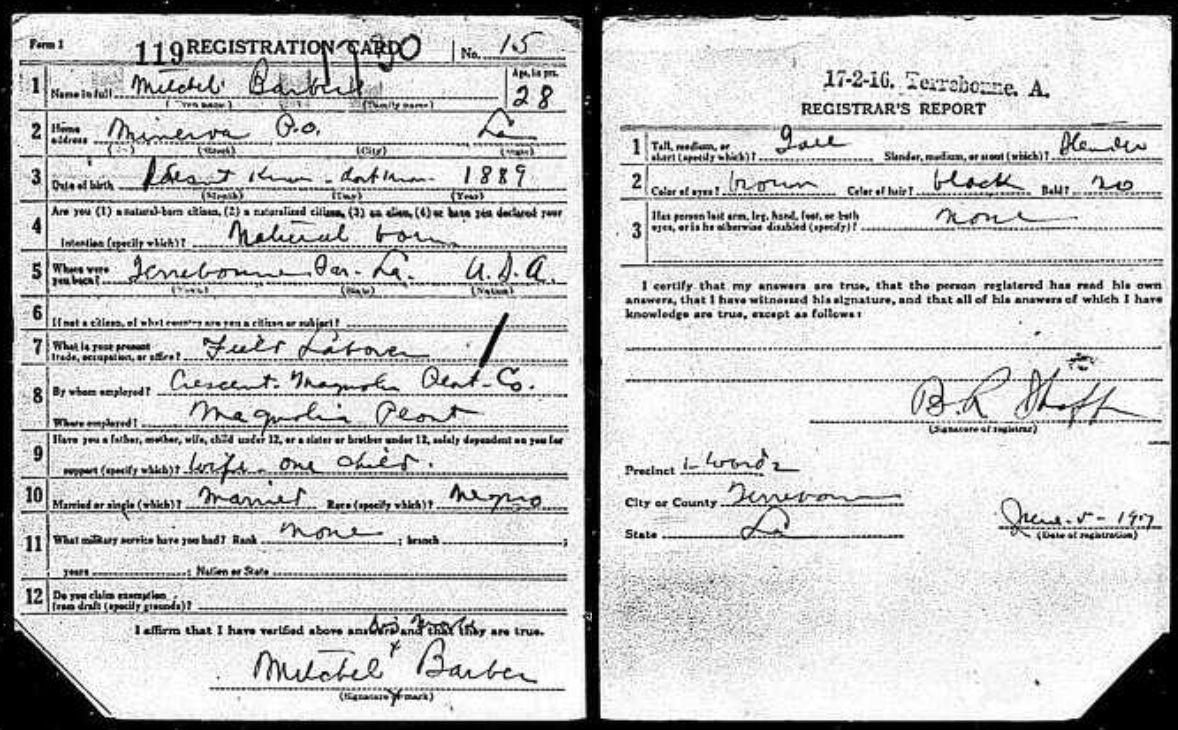 Form 1
119 REGISTRATION CARD No. 15
1 Name in full Mitchel Barber Age, in yrs. 28
(Given name) (Family name)
2 Home address Minerva P.O. La
(No.) (Street) (City) (State)
3 Date of birth Doesnt Know - dont know 1889
(Month) (Day) (Year)
4 Are you (1) a natural-born citizen, (2) a naturalized citizen, (3) an alien, (4) or have you declared your
intention (specify which)? Natural born
5 Where were you born? Terrebonne Par. La. U.S.A.
(Town) (State) (Nation)
6 If not a citizen, of what country are you a citizen or subject?
7 What is your present trade, occupation, or office? Field Laborer
8 By whom employed? Crescent. Magnolia Plant-Co.
Where employed? Magnolia Plant
9 Have you a father, mother, wife, child under 12, or a sister or brother under 12, solely dependent on you for
support (specify which)? wife - one child.
10 Married or single (which)? Married Race (specify which)? Negro
11 What military service have you had? Rank none ; branch ;
years ; Nation or State
12 Do you claim exemption from draft (specify grounds)?
I affirm that I have verified above answers and that they are true.
his mark
Mitchel x Barber
(Signature or mark)
17-2-16. Terrebonne. A.
REGISTRAR'S REPORT
1 Tall, medium, or short (specify which)? Tall Slender, medium, or stout (which)? Slender
2 Color of eyes? brown Color of hair? black Bald? no
3 Has person lost arm, leg, hand, foot, or both eyes, or is he otherwise disabled (specify)? none
I certify that my answers are true, that the person registered has read his own
answers, that I have witnessed his signature, and that all of his answers of which I have
knowledge are true, except as follows:
B. R.
(Signature of registrar)
Precinct 1- Ward 2
City or County Terrebonne
State La
June - 5 - 1917
(Date of registration)